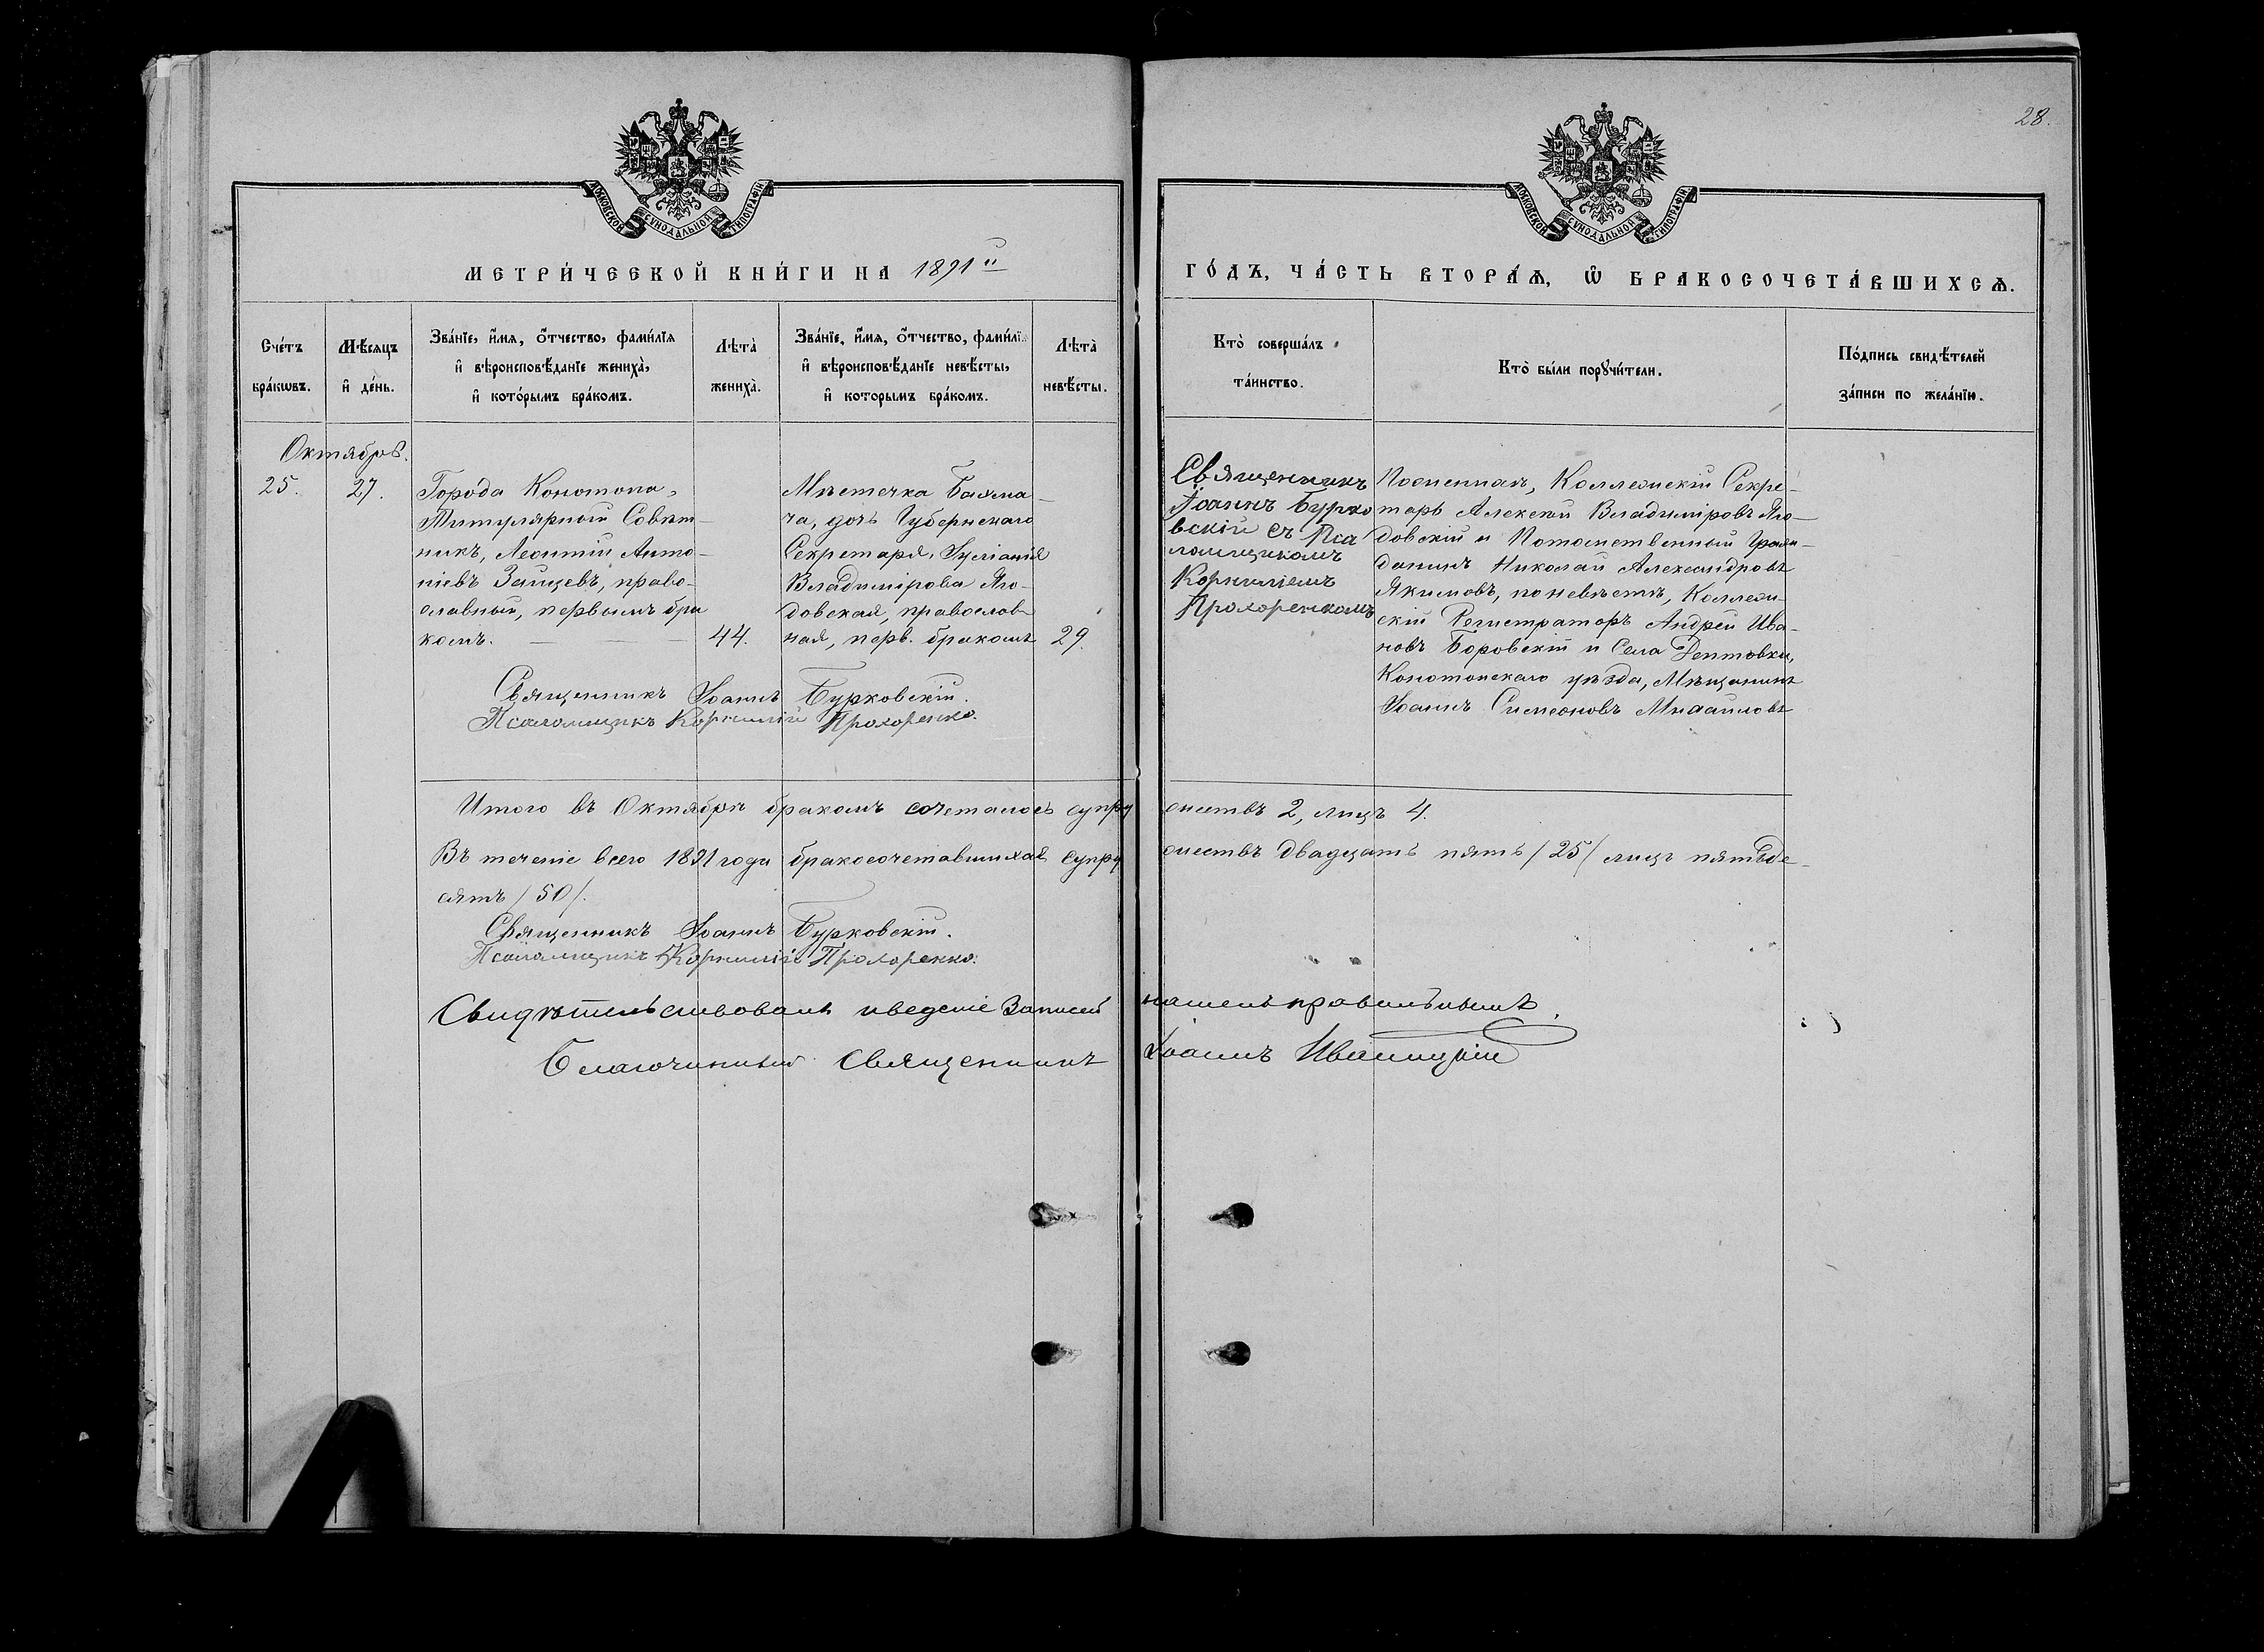 28.
МОСКОВСКОЙ СУНОДАЛЬНОЙ ТИПОГРАФІИ
МОСКОВСКОЙ СУНОДАЛЬНОЙ ТИПОГРАФІИ
МЕТРИ́ЧЕСКОЙ КНИ́ГИ НА 1891й
ГО́ДЪ, ЧА́СТЬ ВТОРА́Ѧ, Ѽ БРАКОСОЧЕТА́ВШИХСѦ.
Сче́тъ
бра́кѡвъ.
Мѣ́сяцъ
и҆ де́нь.
Зва́нїе, и҆́мя, о҆́тчество, фами́лїя
и҆ вѣроисповѣ́данїе жениха̀,
и҆ кото́рымъ бра́комъ.
Лѣта̀
жениха̀.
Зва́нїе, и҆́мя, о҆́тчество, фами́лїя
и҆ вѣроисповѣ́данїе невѣ́сты,
и҆ которымъ бра́комъ.
Лѣта̀
невѣ́сты.
Кто̀ соверша́лъ
та́инство.
Кто̀ бы́ли порꙋчи́тели.
По́дпись свидѣ́телей
за́писи по жела́нїю.
Октябрь.
25.
27.
Города Конотопа,
Титулярный Совѣт-
никъ, Леонтій Анто-
ніевъ Зайцевъ, право-
славный, первымъ бра
комъ.
44.
Мѣстечка Бахма-
ча, дочь Губернскаго
Секретаря, Іуліанія
Владимірова Яго-
довская, православ-
ная, перв. бракомъ
29.
Священникъ
Іоаннъ Бурко
вскій съ Пса
ломщикомъ
Корниліемъ
Прохоренкомъ
По женихѣ, Коллежскій Секре-
тарь Алексѣй Владиміровъ Яго-
довскій и Потомственный Граж-
данинъ Николай Александровъ
Якимовъ, по невѣстѣ, Коллеж-
скій Регистраторъ Андрей Ива-
новъ Боровскій и Села Дептовки,
Конотопскаго уѣзда, Мѣщанинъ
Іоаннъ Симеоновъ Михайловъ
Священникъ Іоаннъ Бурковскій.
Псаломщикъ Корнилій Прохоренко.
Итого въ Октябрѣ бракомъ сочеталось супру жествъ 2, лицъ 4.
Въ теченіе всего 1891 года бракосочетавшихся супру жествъ двадцать пять /25/ лицъ пятьде-
сятъ /50/.
Священникъ Іоаннъ Бурковскій.
Псаломщикъ Корнилій Прохоренко.
Свидѣтельствовалъ и веденіе Записей нашелъ правильнымъ.
Благочинный Священникъ Іоаннъ